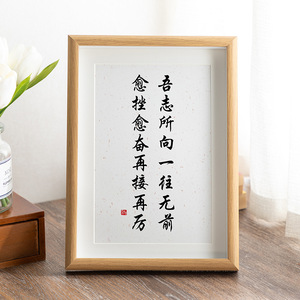 吾志所向一往无前
愈挫愈奋再接再厉